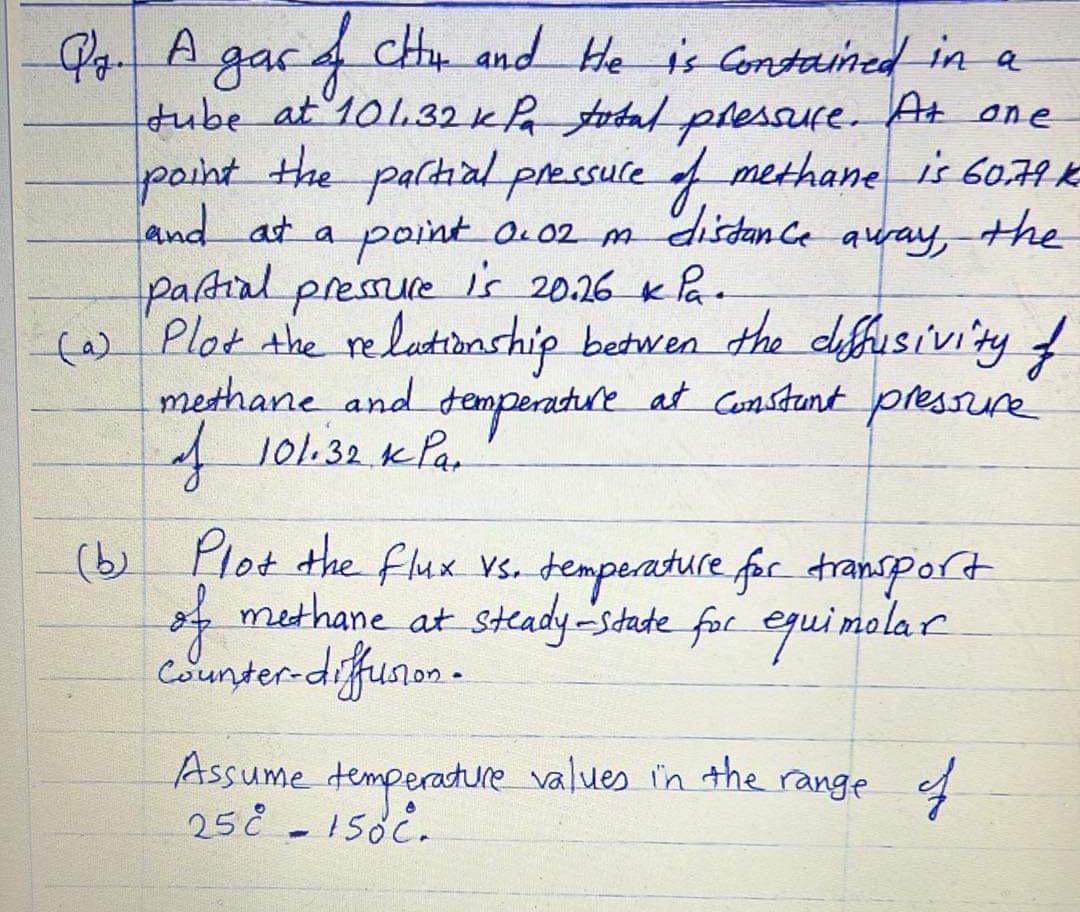 Q2. A gas of CH4 and He is Contained in a
tube at 101.32 k Pa total pressure. At one
point the partial pressure of methane is 60.79 k
and at a point 0.02 m distance away, the
partial pressure is 20.26 k Pa.
(a) Plot the relationship betwen the diffusivity of
methane and temperature at constant pressure
of 101.32 k Pa.
(b) Plot the flux vs. temperature for transport
of methane at steady-state for equimolar
counter-diffusion.
Assume temperature values in the range of
25°C - 150°C.